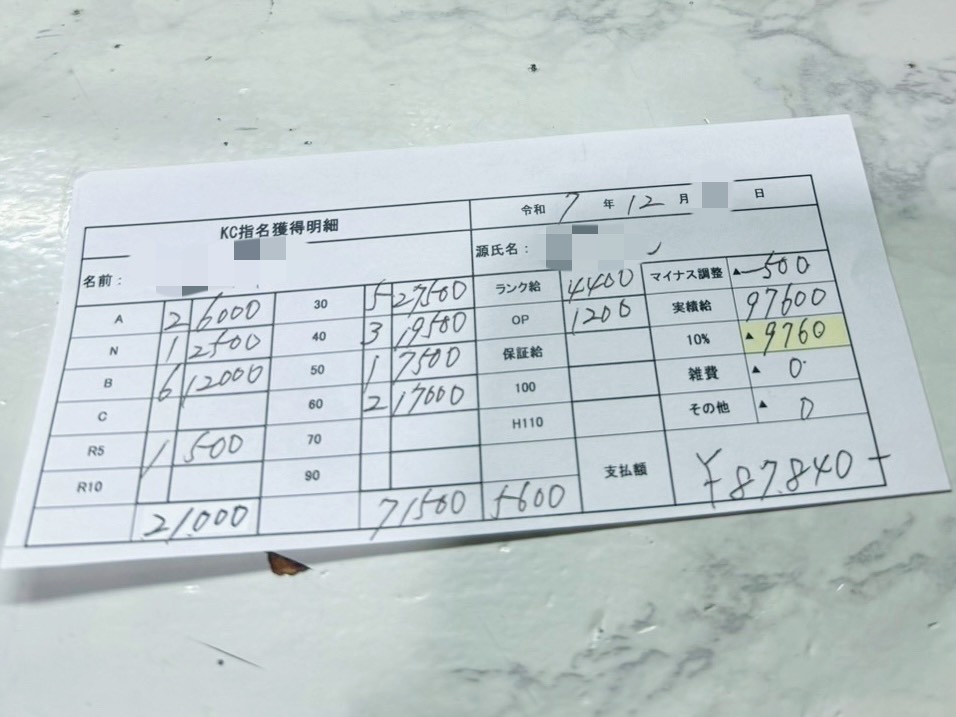 KC指名獲得明細
令和 7 年 12 月 日
名前：
源氏名：
A 2 6000 30 5 27500 ランク給 4400 マイナス調整 ▲ 500
N 1 2500 40 3 19500 OP 1200 実績給 97600
B 6 12000 50 1 7500 保証給 10% ▲ 9760
C 60 2 17000 100 雑費 ▲ 0
R5 1 500 70 H110 その他 ▲ 0
R10 90 支払額 ¥87,840-
21,000 71500 5600